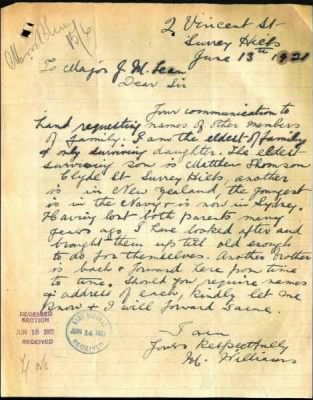 2 Vincent St
Surrey Hills
June 13th 1921
15/6
To Major J. M. Lean
Dear Sir
Your communication to
hand requesting names of other members
of Family. I am the eldest of family
& only surviving daughter. The eldest
surviving son is Matthew Thomson
Clyde St Surrey Hills, another
is in New Zealand, the youngest
is in the Navy & is now in Sydney.
Having lost both parents many
years ago. I have looked after and
brought them up till old enough
to do for themselves. Another brother
is back & forward here from time
to time. Should you require names
& address of each, kindly let me
know & I will forward same.
I am
Yours Respectfully
M. Williams
DECEASED
SECTION
JUN 16 1921
RECEIVED
BASE RECORDS
JUN 14 1921
RECEIVED